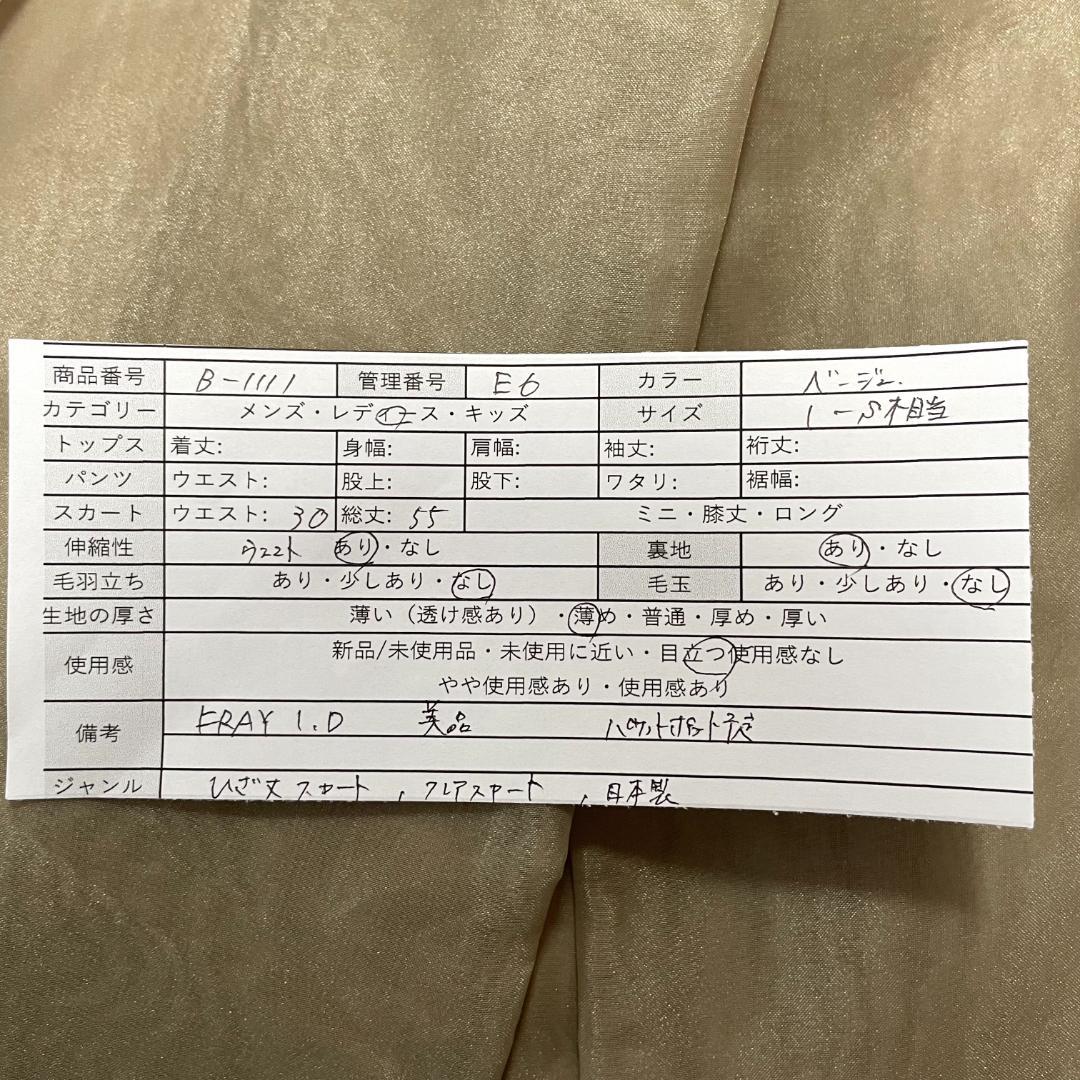 商品番号 B-1111 管理番号 E6 カラー ベージュ.
カテゴリー メンズ・レディース・キッズ サイズ 1-S相当
トップス 着丈: 身幅: 肩幅: 袖丈: 裄丈:
パンツ ウエスト: 股上: 股下: ワタリ: 裾幅:
スカート ウエスト: 30 総丈: 55 ミニ・膝丈・ロング
伸縮性 ウエスト あり・なし 裏地 あり・なし
毛羽立ち あり・少しあり・なし 毛玉 あり・少しあり・なし
生地の厚さ 薄い(透け感あり)・薄め・普通・厚め・厚い
使用感 新品/未使用品・未使用に近い・目立つ使用感なし
やや使用感あり・使用感あり
備考 ERAY 1.D 美品
ジャンル ひざ丈スカート, フレアスカート, 日本製